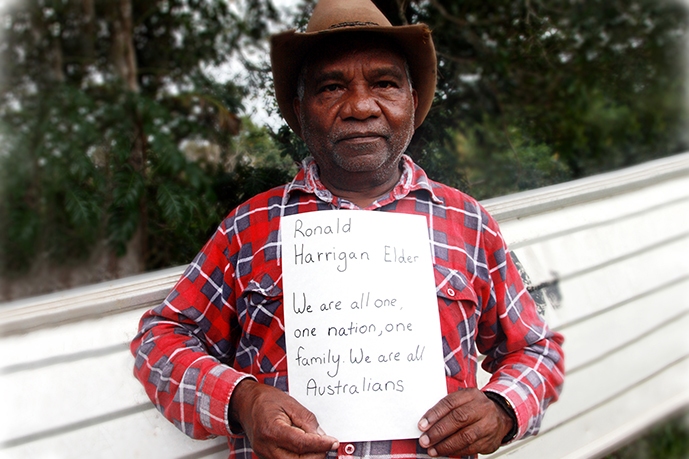 Ronald
Harrigan Elder
We are all one,
one nation, one
family. We are all
Australians